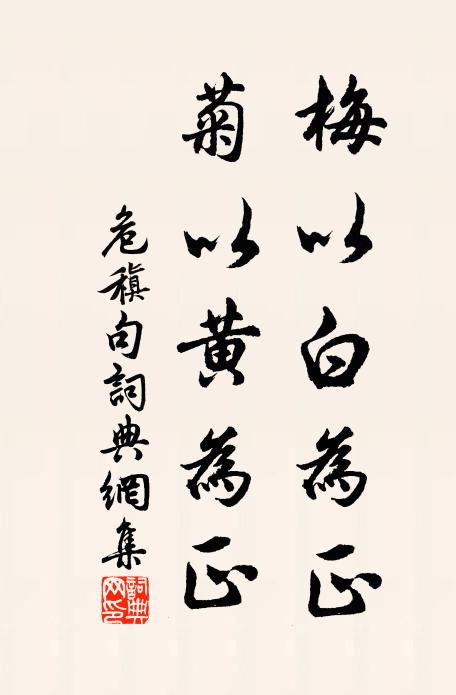 梅以白為正
菊以黃為正
危稹句詞典網集
詞典網印